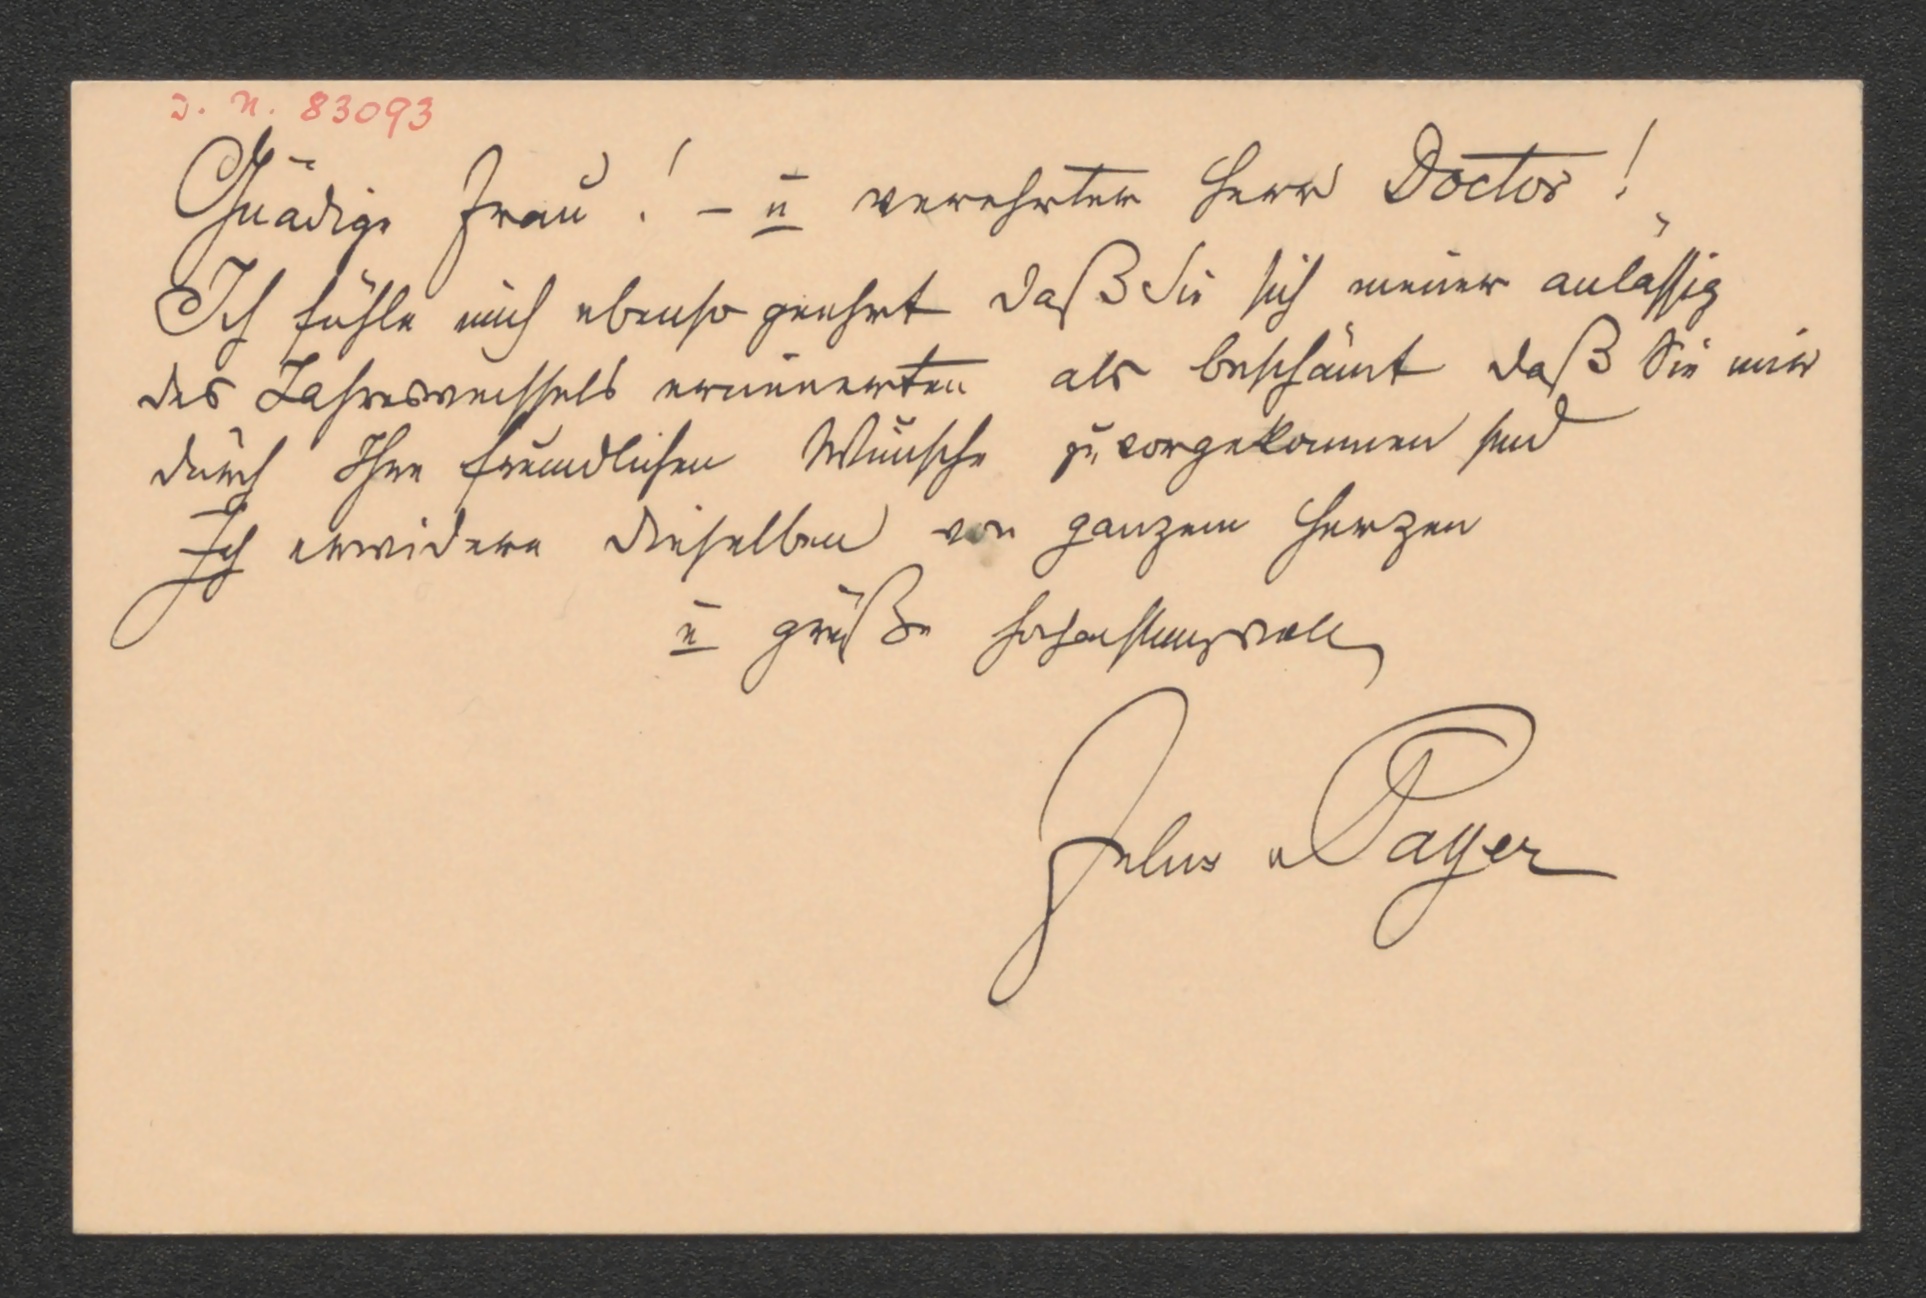 I. N. 83093
Gnädige Frau! – u verehrter Herr Doctor!
Ich fühle mich ebenso geehrt daß Sie sich meiner anläßig
des Jahreswechsels erinnerten als beschämt daß Sie mir
durch Ihre freundlichen Wünsche zuvorgekommen sind
Ich erwidere dieselben von ganzem Herzen
u grüße hochachtungsvoll
Julius v Payer